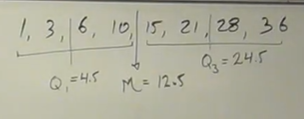 1, 3, 6, 10, 15, 21, 28, 36
Q₁=4.5 M=12.5 Q₃=24.5